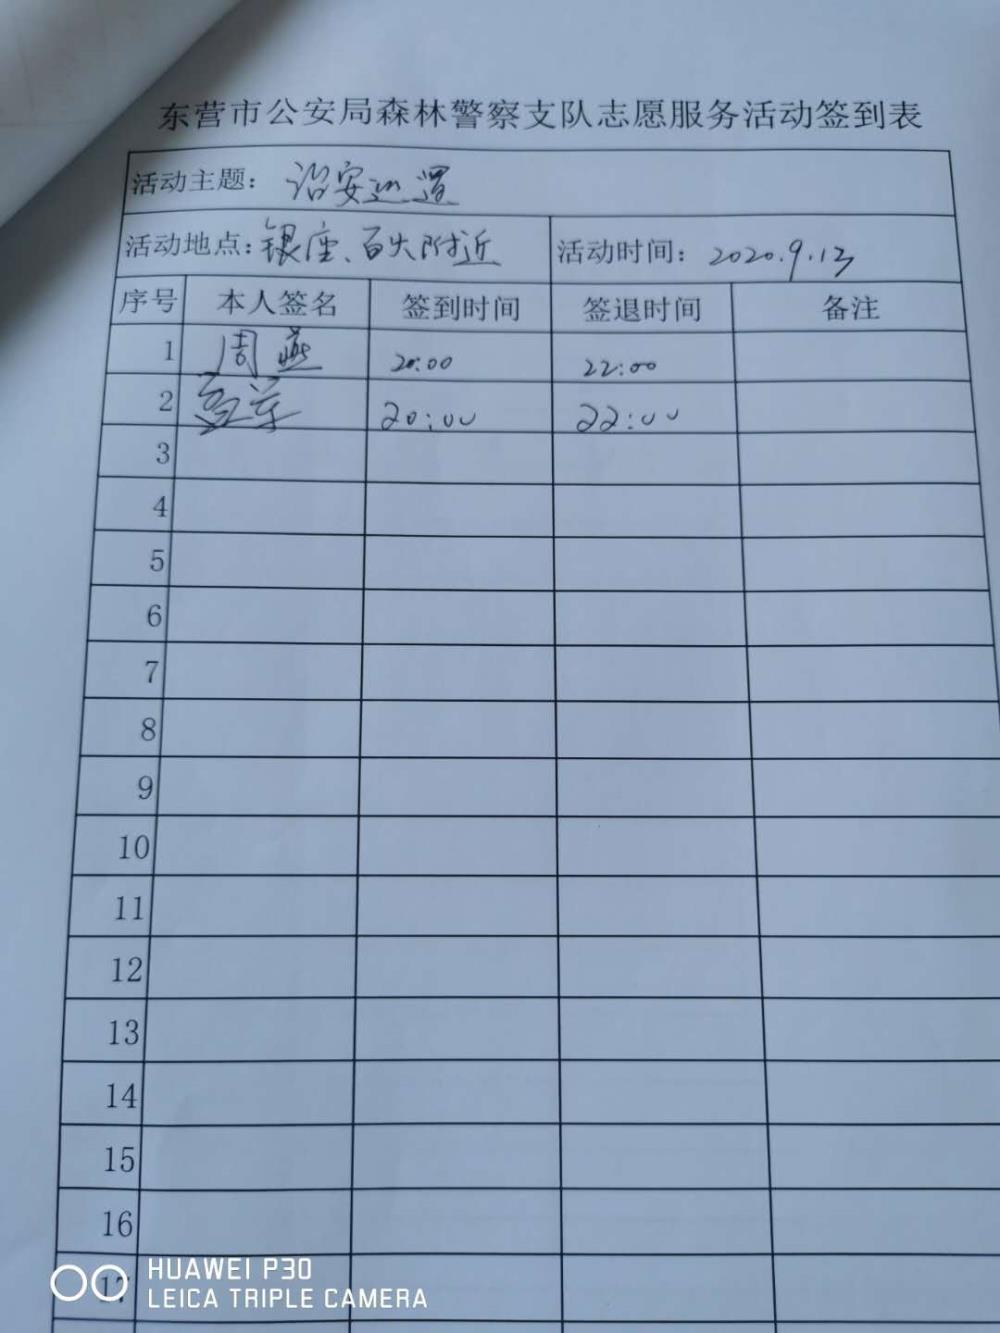 东营市公安局森林警察支队志愿服务活动签到表
活动主题： 治安巡逻
活动地点：银座、百大附近 活动时间：2020.9.13
序号 本人签名 签到时间 签退时间 备注
1 周燕 20:00 22:00
2 20:00 22:00
3
4
5
6
7
8
9
10
11
12
13
14
15
16
17
HUAWEI P30
LEICA TRIPLE CAMERA